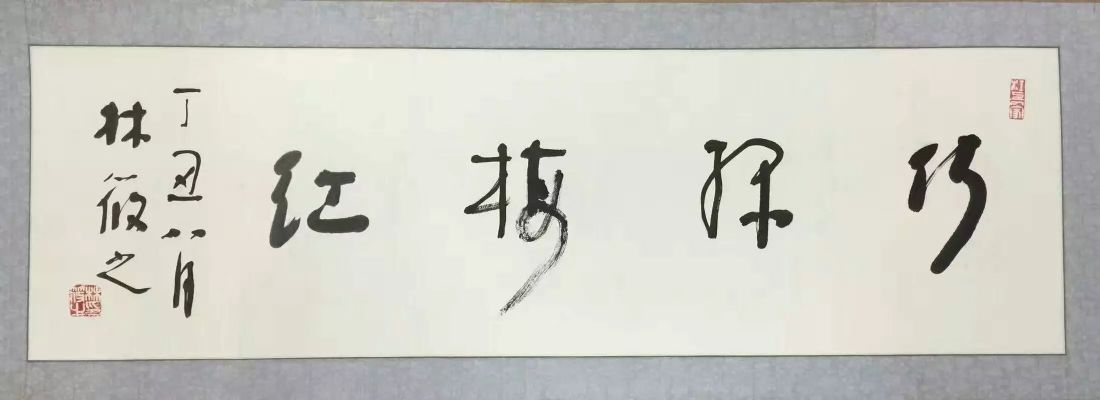 竹绿梅红
丁丑八月
林筱之